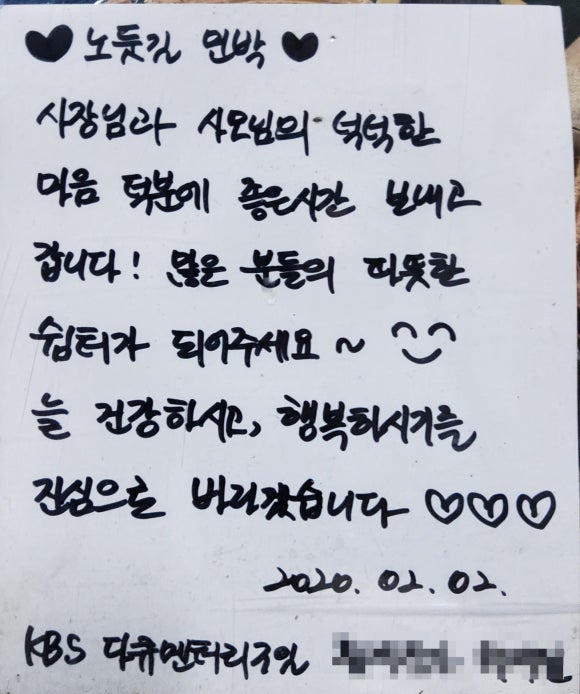 ♥ 노둣길 민박 ♥
사장님과 사모님의 넉넉한
마음 덕분에 좋은시간 보내고
갑니다! 많은 분들의 따뜻한
쉼터가 되어주세요~
늘 건강하시고, 행복하시기를
진심으로 바라겠습니다 ♡♡♡
2020. 02. 02.
KBS 다큐멘터리3일